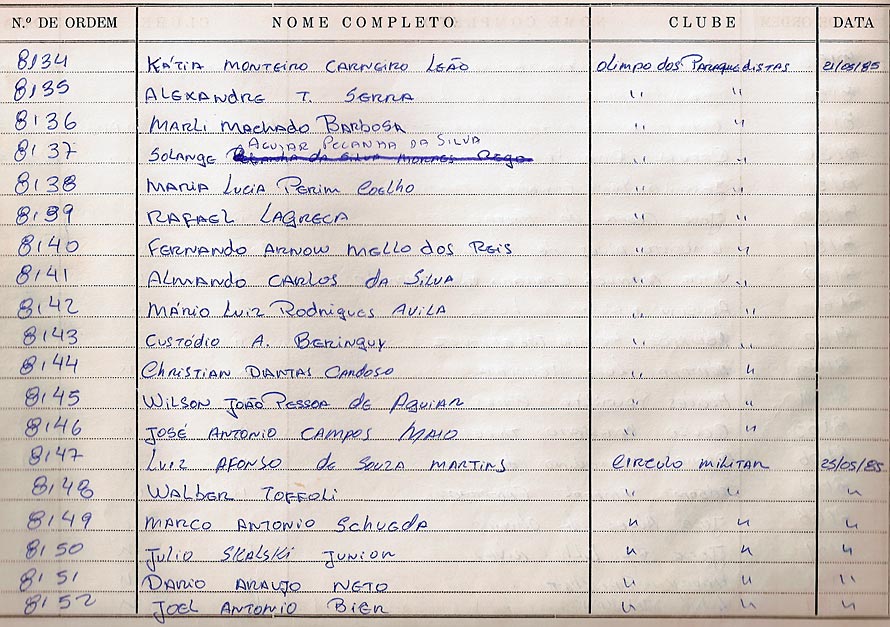 N.º DE ORDEM NOME COMPLETO CLUBE DATA
8134 KÁTIA MONTEIRO CARNEIRO LEÃO Olimpo dos Paraquedistas 21/05/85
8135 ALEXANDRE T. SERRA " "
8136 MARLI MACHADO BARBOSA " "
8137 SOLANGE AGUIAR PEÇANHA DA SILVA " "
8138 MARIA Lucia Perim Coelho " "
8139 RAFAEL LAGRECA " "
8140 FERNANDO ARNOW MELLO dos REIS " "
8141 ALMANDO CARLOS da SILVA " "
8142 MÁRIO Luiz Rodrigues AVILA " "
8143 CUSTÓDIO A. BERINGUY " "
8144 CHRISTIAN DANTAS CARDOSO " "
8145 WILSON JOÃO PESSOA de AGUIAR " "
8146 JOSÉ ANTONIO CAMPOS MAIO " "
8147 LUIZ AFONSO de SOUZA MARTINS CIRCULO MILITAR 25/05/85
8148 WALBER TOFFOLI " " "
8149 MARCO ANTONIO SCHUEDA " " "
8150 JULIO SKALSKI JUNIOR " " "
8151 DARIO ARAUJO NETO " " "
8152 JOEL ANTONIO BIER " " "